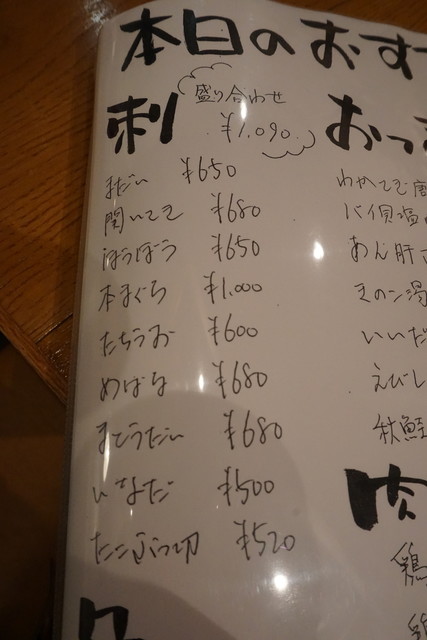 本日のおす
刺
盛り合わせ
¥1,090
まだい ¥650
¥680
ほうぼう ¥650
本まぐろ ¥1,000
たちうお ¥600
めばる ¥680
まとうだい ¥680
いなだ ¥500
たこぶつ切 ¥520
おっ
あん肝
きのこ湯
いいだ
えびし
秋鮭
肉
鶏